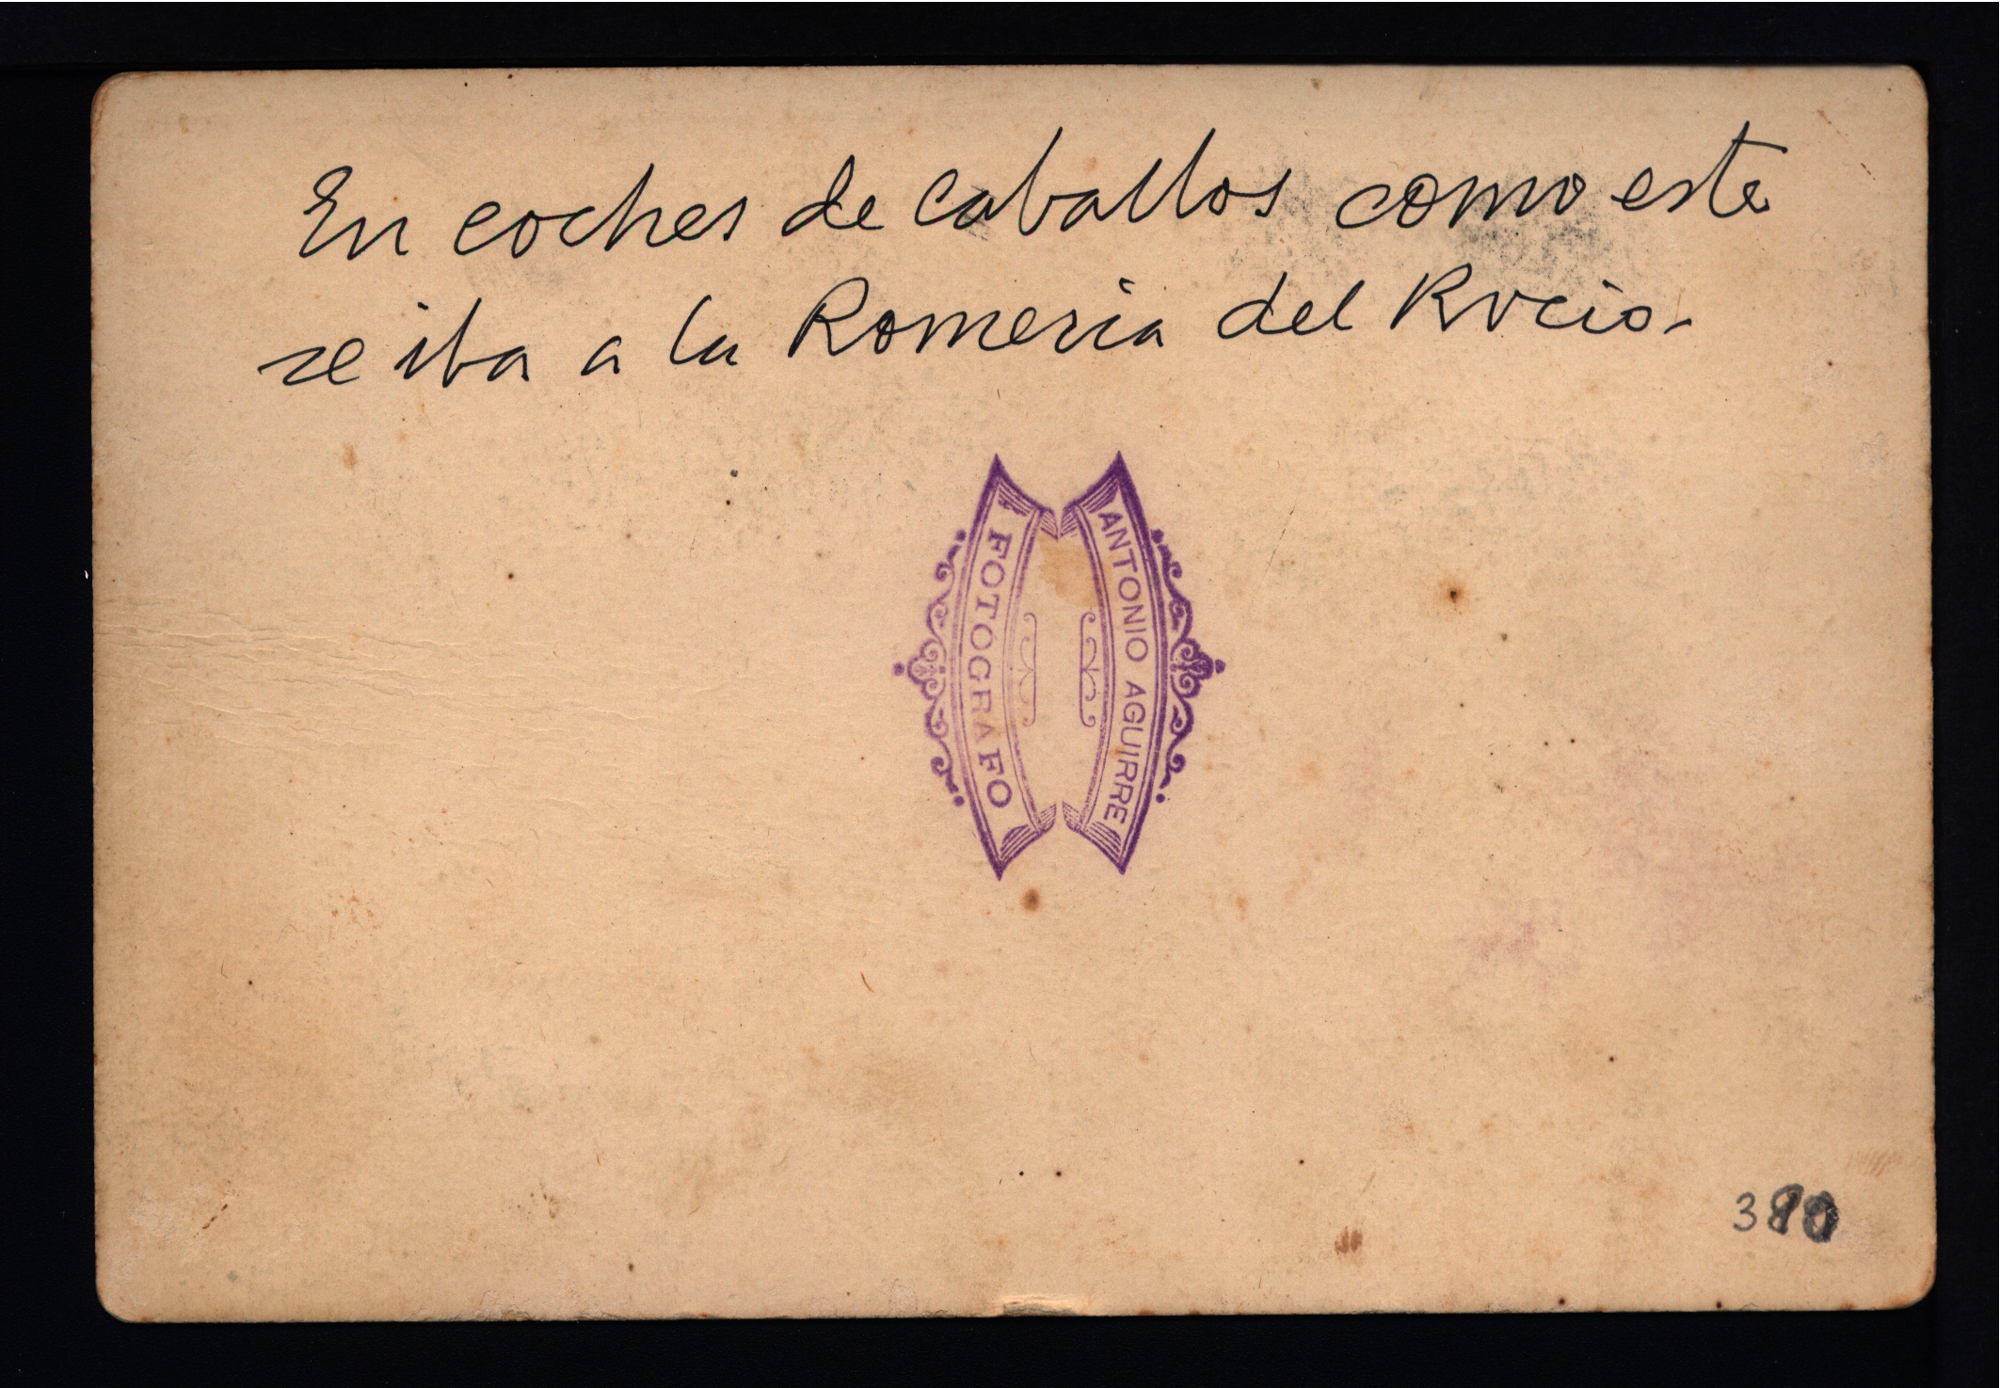 En coches de caballos como este
se iba a la Romeria del Rocio.
ANTONIO AGUIRRE
FOTOGRAFO